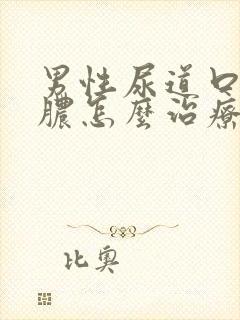 男性尿道口
膿怎麼治療
比奧